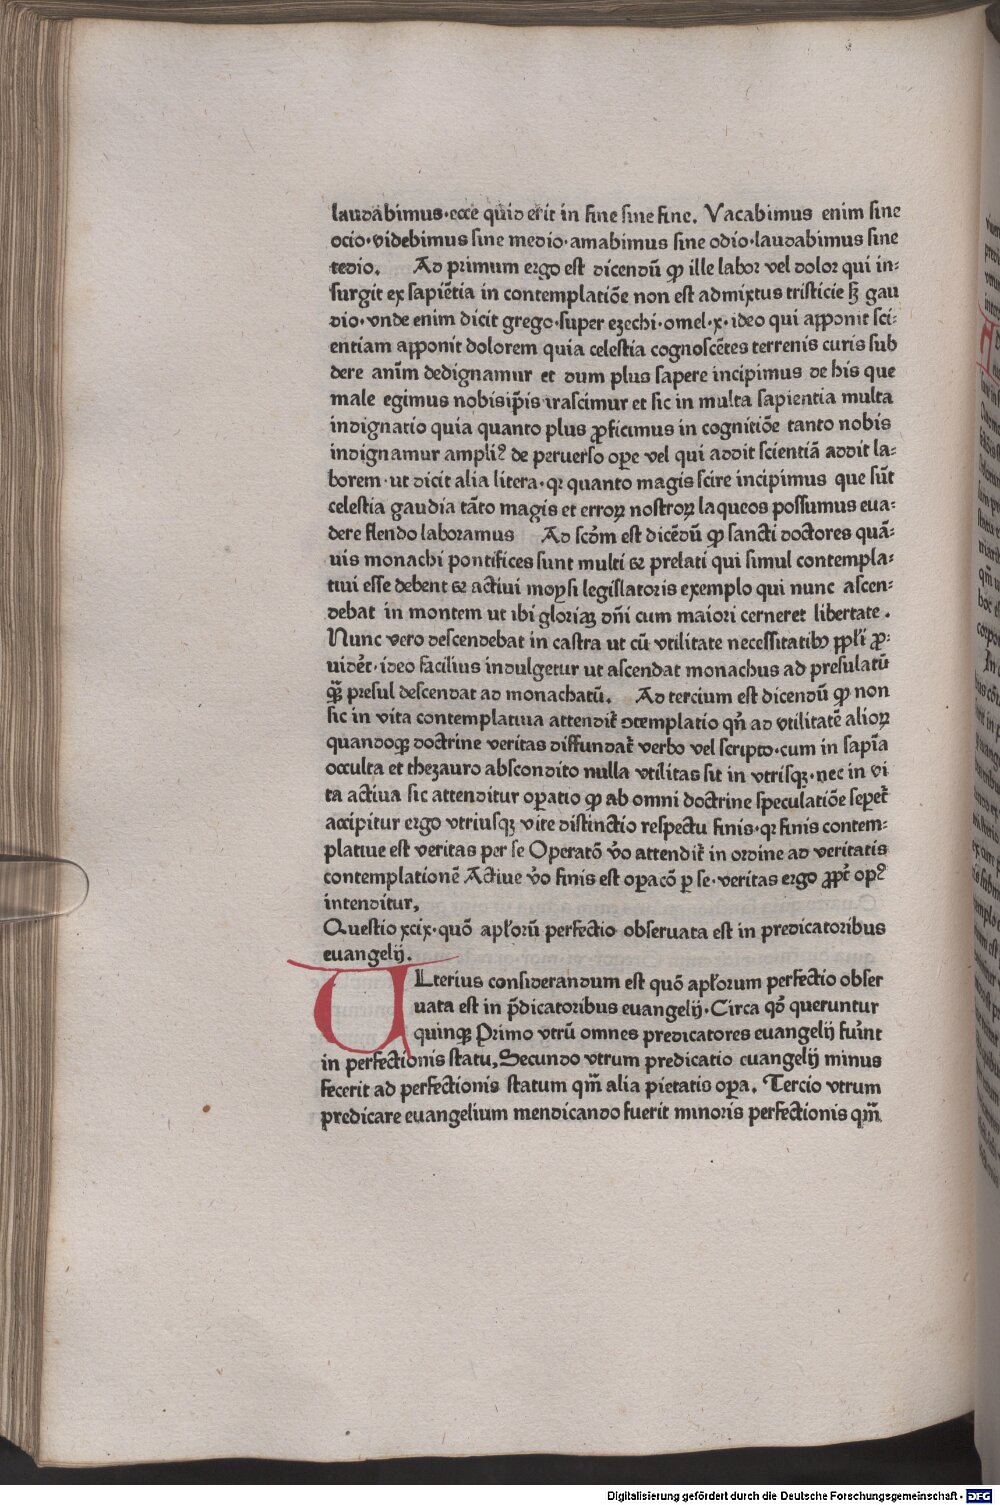 laudabimus·ecce quid erit in fine sine fine. Vacabimus enim sine
ocio·videbimus sine medio·amabimus sine odio·laudabimus sine
tedio. Ad primum ergo est dicendū ꝙ ille labor vel dolor qui in⸗
surgit ex sapiētia in contemplatiōe non est admixtus tristicie sꝫ gau
dio·vnde enim dicit grego·super ezechi·omel·x·ideo qui apponit sci⸗
entiam apponit dolorem quia celestia cognoscētes terrenis curis sub
dere anīm dedignamur et dum plus sapere incipimus de his que
male egimus nobisip̄is irascimur et sic in multa sapientia multa
indignatio quia quanto plus ꝓficimus in cognitiōe tanto nobis
indignamur ampliꝰ de peruerso oꝑe vel qui addit scientiā addit la⸗
borem·ut dicit alia litera·qꝛ quanto magis scire incipimus que sūt
celestia gaudia tāto magis et erroꝝ nostroꝝ laqueos possumus eua⸗
dere flendo laboramus Ad scōm est dicēdū ꝙ sancti doctores quā⸗
uis monachi pontifices sunt multi ⁊ prelati qui simul contempla⸗
tiui esse debent ⁊ actiui moysi legislatoris exemplo qui nunc ascen⸗
debat in montem ut ibi gloriaꝫ dn̄i cum maiori cerneret libertate.
Nunc vero descendebat in castra ut cū vtilitate necessitatibꝫ ppl̄i ꝓ⸗
uidēt·ideo facilius indulgetur ut ascendat monachus ad presulatū
qꝫ̄ presul descendat ad monachatū. Ad tercium est dicendū ꝙ non
sic in vita contemplatiua attendit᷑ ꝯtemplatio qn̄ ad vtilitatē alioꝝ
quandoqꝫ doctrine veritas diffundat᷑ verbo vel scripto·cum in sapīa
occulta et thezauro abscondito nulla vtilitas sit in vtrisqꝫ·nec in vi
ta actiua sic attenditur oꝑatio ꝙ ab omni doctrine speculatiōe seꝑet᷑
accipitur ergo vtriusqꝫ vite distinctio respectu finis·qꝛ finis contem⸗
platiue est veritas per se Operatō v̄o attendit᷑ in ordine ad veritatis
contemplationē Actiue v̄o finis est oꝑacō ꝑ se·veritas ergo ꝓpt᷑ opꝰ
intenditur,
Questio xcix·quō apl̄orū perfectio obseruata est in predicatoribus
euangelij.
ULterius considerandum est quō apl̄orum perfectio obser
uata est in p̄dicatoribus euangelij·Circa qd̄ queruntur
quinqꝫ Primo vtrū omnes predicatores euangelij fuīnt
in perfectionis statu, Secundo vtrum predicatio euangelij minus
fecerit ad perfectionis statum qm̄ alia pietatis oꝑa. Tercio vtrum
predicare euangelium mendicando fuerit minoris perfectionis qm̄
Digitalisierung gefördert durch die Deutsche Forschungsgemeinschaft - DFG